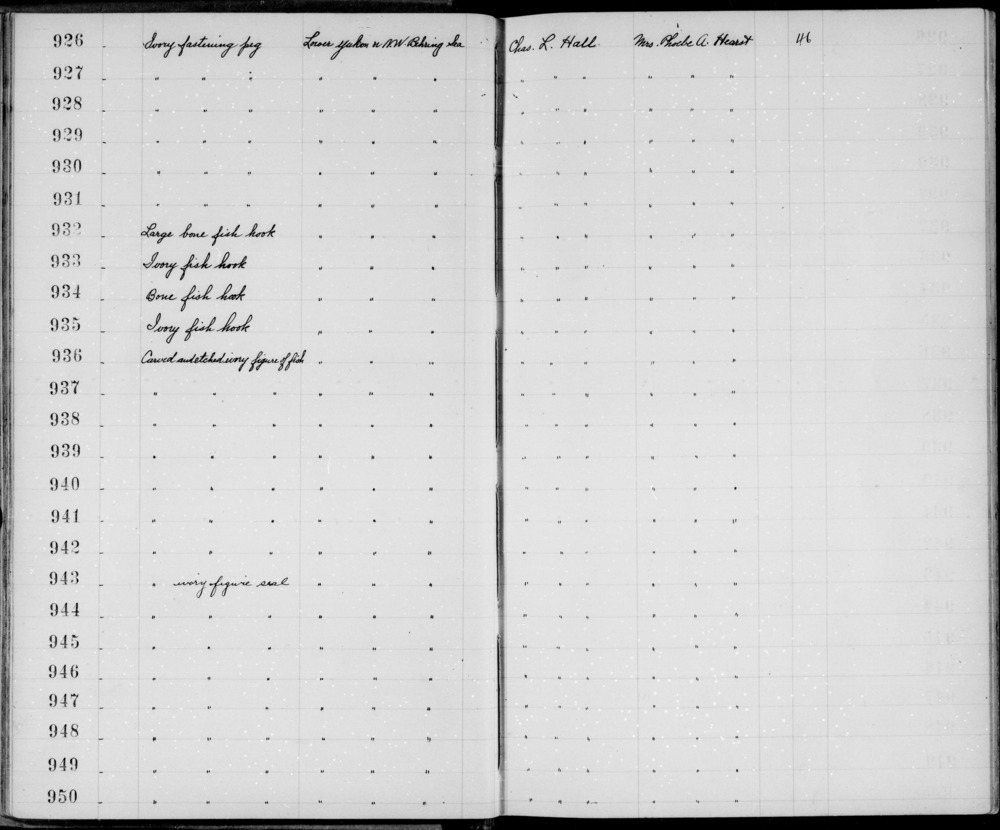 926 Ivory fastening peg Lower Yukon & N.W. Behring Sea Chas. L. Hall Mrs. Phoebe A. Hearst 46
927 " " " " " " " " " " " "
928 " " " " " " " " " " " "
929 " " " " " " " " " " " "
930 " " " " " " " " " " " "
931 " " " " " " " " " " " "
932 Large bone fish hook " " " " " " " " "
933 Ivory fish hook " " " " " " " " "
934 Bone fish hook " " " " " " " " "
935 Ivory fish hook " " " " " " " " "
936 Carved and etched ivory figure of fish " " " " " " " " "
937 " " " " " " " " " " " "
938 " " " " " " " " " " " "
939 " " " " " " " " " " " "
940 " " " " " " " " " " " "
941 " " " " " " " " " " " "
942 " " " " " " " " " " " "
943 " ivory figure seal " " " " " " " " "
944 " " " " " " " " " " " "
945 " " " " " " " " " " " "
946 " " " " " " " " " " " "
947 " " " " " " " " " " " "
948 " " " " " " " " " " " "
949 " " " " " " " " " " " "
950 " " " " " " " " " " " "